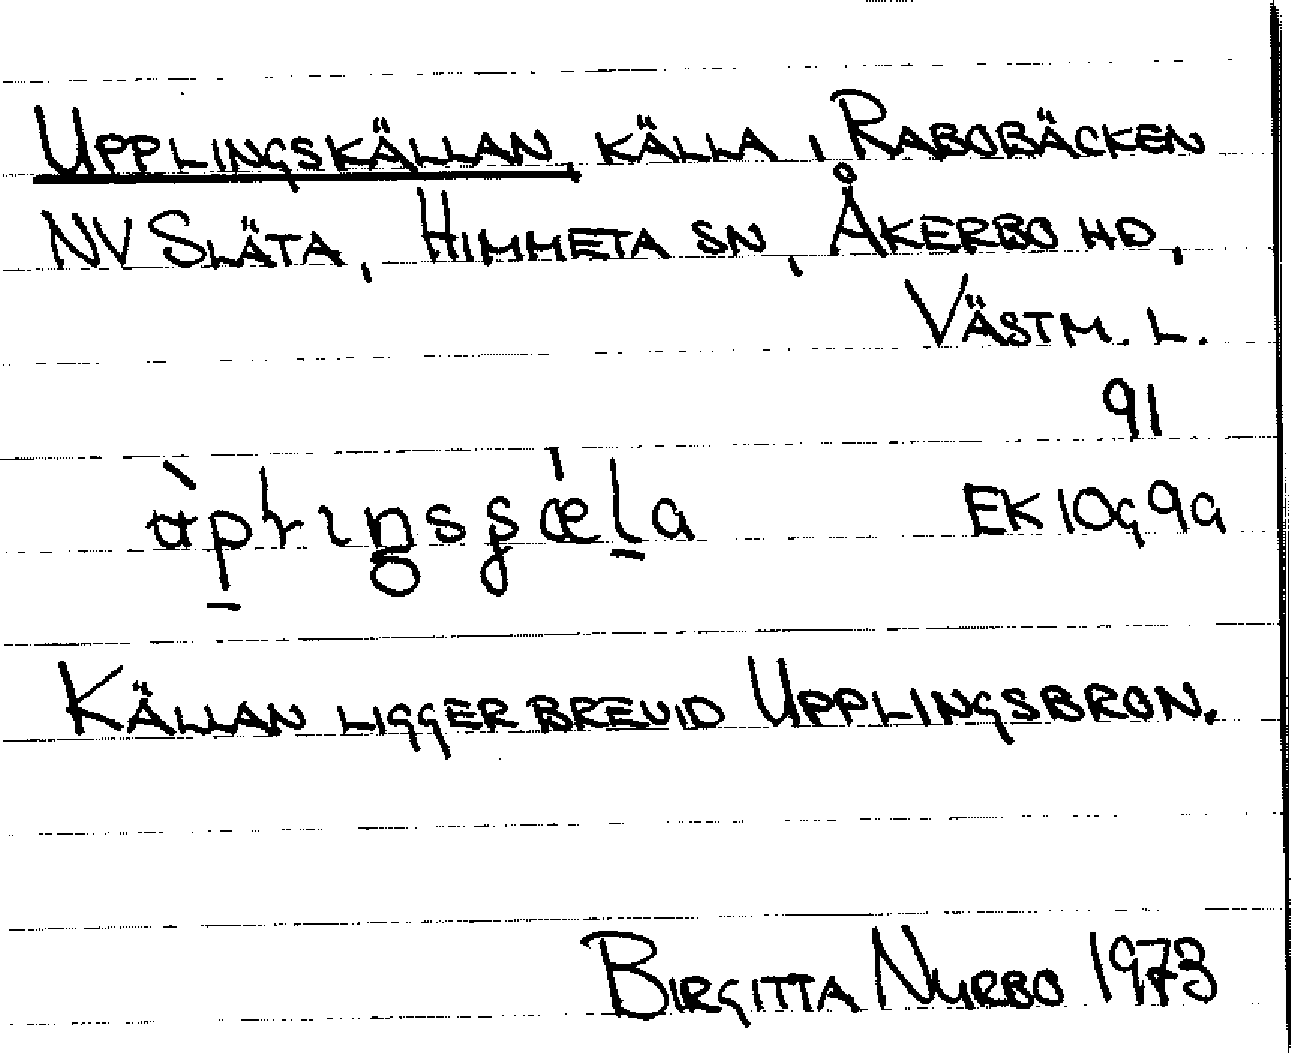 UPPLINGSKÄLLAN, KÄLLA I RABOBÄCKEN
NV SLÄTA, HIMMETA SN, ÅKERBO HD,
VÄSTM. L.
91
EK 10g 9a
KÄLLAN LIGGER BREVID UPPLINGSBRON.
BIRGITTA NYRBO 1973